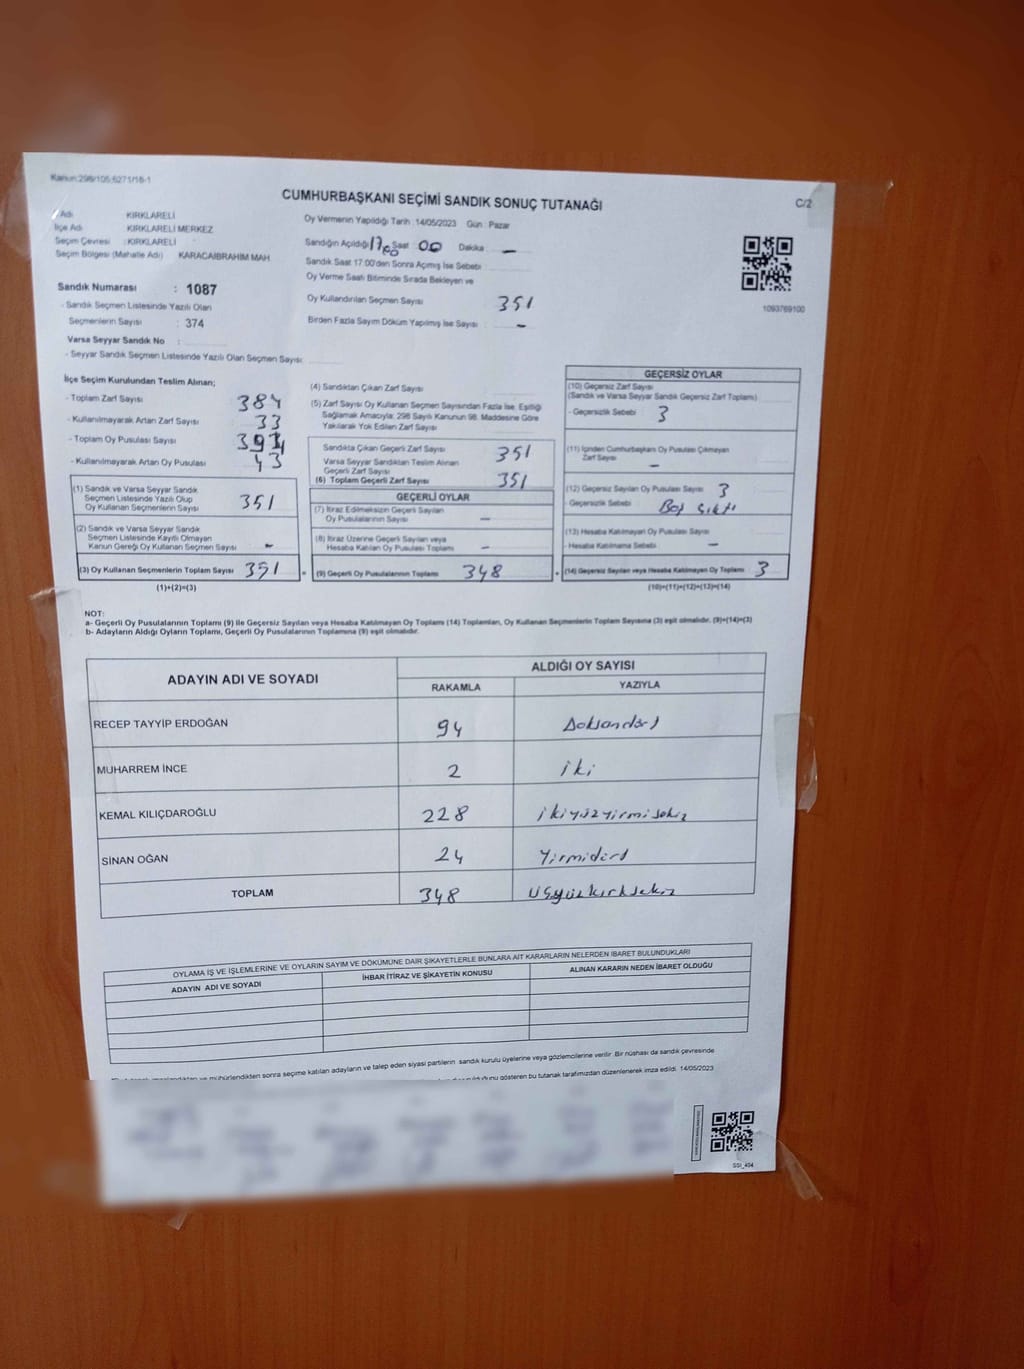 Kanun:298/105;6271/16-1
CUMHURBAŞKANI SEÇİMİ SANDIK SONUÇ TUTANAĞI
C/2
Adı KIRKLARELİ
İlçe Adı KIRKLARELİ MERKEZ
Seçim Çevresi : KIRKLARELİ
Seçim Bölgesi (Mahalle Adı) KARACAİBRAHİM MAH
Sandık Numarası : 1087
- Sandık Seçmen Listesinde Yazılı Olan
Seçmenlerin Sayısı : 374
Varsa Seyyar Sandık No :
- Seyyar Sandık Seçmen Listesinde Yazılı Olan Seçmen Sayısı:
Oy Vermenin Yapıldığı Tarih : 14/05/2023 Gün : Pazar
Sandığın Açıldığı 17 00 Saat : 00 Dakika : -
Sandık Saat 17:00'den Sonra Açımış İse Sebebi :
Oy Verme Saati Bitiminde Sırada Bekleyen ve
Oy Kullandırılan Seçmen Sayısı : 351
Birden Fazla Sayım Döküm Yapılmış İse Sayısı : -
1093769100
İlçe Seçim Kurulundan Teslim Alınan;
- Toplam Zarf Sayısı 384
- Kullanılmayarak Artan Zarf Sayısı 33
- Toplam Oy Pusulası Sayısı
- Kullanılmayarak Artan Oy Pusulası 43
(1) Sandık ve Varsa Seyyar Sandık
Seçmen Listesinde Yazılı Olup
Oy Kullanan Seçmenlerin Sayısı 351
(2) Sandık ve Varsa Seyyar Sandık
Seçmen Listesinde Kayıtlı Olmayan
Kanun Gereği Oy Kullanan Seçmen Sayısı -
(3) Oy Kullanan Seçmenlerin Toplam Sayısı 351
(1)+(2)=(3)
(4) Sandıktan Çıkan Zarf Sayısı
(5) Zarf Sayısı Oy Kullanan Seçmen Sayısından Fazla İse, Eşitliği
Sağlamak Amacıyla; 298 Sayılı Kanunun 98. Maddesine Göre
Yakılarak Yok Edilen Zarf Sayısı
Sandıkta Çıkan Geçerli Zarf Sayısı 351
Varsa Seyyar Sandıktan Teslim Alınan
Geçerli Zarf Sayısı
(6) Toplam Geçerli Zarf Sayısı 351
GEÇERLİ OYLAR
(7) İtiraz Edilmeksizin Geçerli Sayılan
Oy Pusulalarının Sayısı -
(8) İtiraz Üzerine Geçerli Sayılan veya
Hesaba Katılan Oy Pusulası Toplamı -
= (9) Geçerli Oy Pusulalarının Toplamı 348 +
GEÇERSİZ OYLAR
(10) Geçersiz Zarf Sayısı
(Sandık ve Varsa Seyyar Sandık Geçersiz Zarf Toplamı)
- Geçersizlik Sebebi : 3
(11) İçinden Cumhurbaşkanı Oy Pusulası Çıkmayan
Zarf Sayısı -
(12) Geçersiz Sayılan Oy Pusulası Sayısı 3
- Geçersizlik Sebebi : Boş çıktı
(13) Hesaba Katılmayan Oy Pusulası Sayısı
- Hesaba Katılmama Sebebi : -
(14) Geçersiz Sayılan veya Hesaba Katılmayan Oy Toplamı 3
(10)+(11)+(12)+(13)=(14)
NOT:
a- Geçerli Oy Pusulalarının Toplamı (9) ile Geçersiz Sayılan veya Hesaba Katılmayan Oy Toplamı (14) Toplamları, Oy Kullanan Seçmenlerin Toplam Sayısına (3) eşit olmalıdır. (9)+(14)=(3)
b- Adayların Aldığı Oyların Toplamı, Geçerli Oy Pusulalarının Toplamına (9) eşit olmalıdır.
ADAYIN ADI VE SOYADI
ALDIĞI OY SAYISI
RAKAMLA YAZIYLA
RECEP TAYYİP ERDOĞAN 94 Doksandört
MUHARREM İNCE 2 iki
KEMAL KILIÇDAROĞLU 228 ikiyüzyirmisekiz
SİNAN OĞAN 24 Yirmidört
TOPLAM 348 Üçyüzkırksekiz
OYLAMA İŞ VE İŞLEMLERİNE VE OYLARIN SAYIM VE DÖKÜMÜNE DAİR ŞİKAYETLERLE BUNLARA AİT KARARLARIN NELERDEN İBARET BULUNDUKLARI
ADAYIN ADI VE SOYADI İHBAR İTİRAZ VE ŞİKAYETİN KONUSU ALINAN KARARIN NEDEN İBARET OLDUĞU
imzalandıktan ve mühürlendikten sonra seçime katılan adayların ve talep eden siyasi partilerin sandık kurulu üyelerine veya gözlemcilerine verilir. Bir nüshası da sandık çevresinde
gösteren bu tutanak tarafımızdan düzenlenerek imza edildi. 14/05/2023
SSI_404